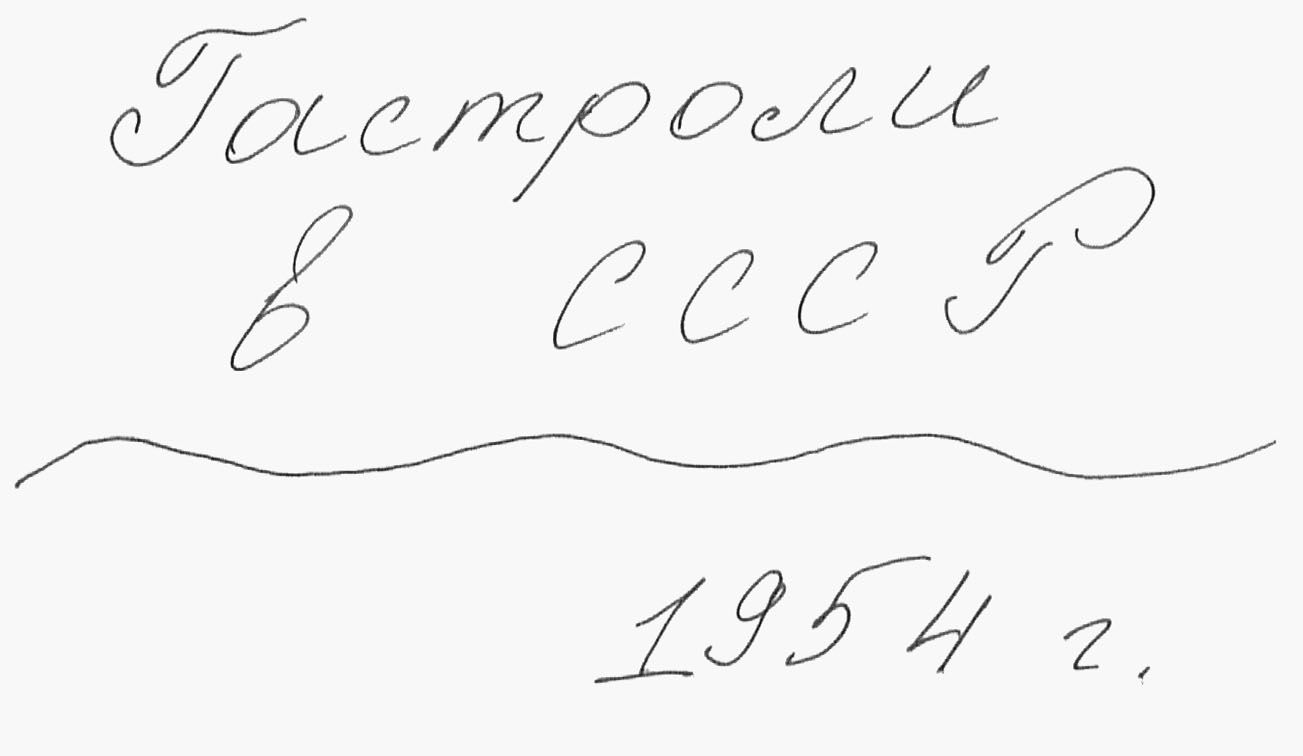 Гастроли
в СССР
1954 г.